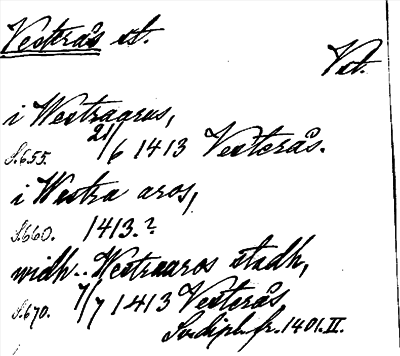 Vesterås st.
Vst.
i Westraarus,
S.655. 21/6 1413 Vesterås.
i Westra aros,
S.660. 1413.?
widh.. Westraaros stadh,
S.670. 7/7 1413 Vesterås
Sv. dipl. fr. 1401. II.